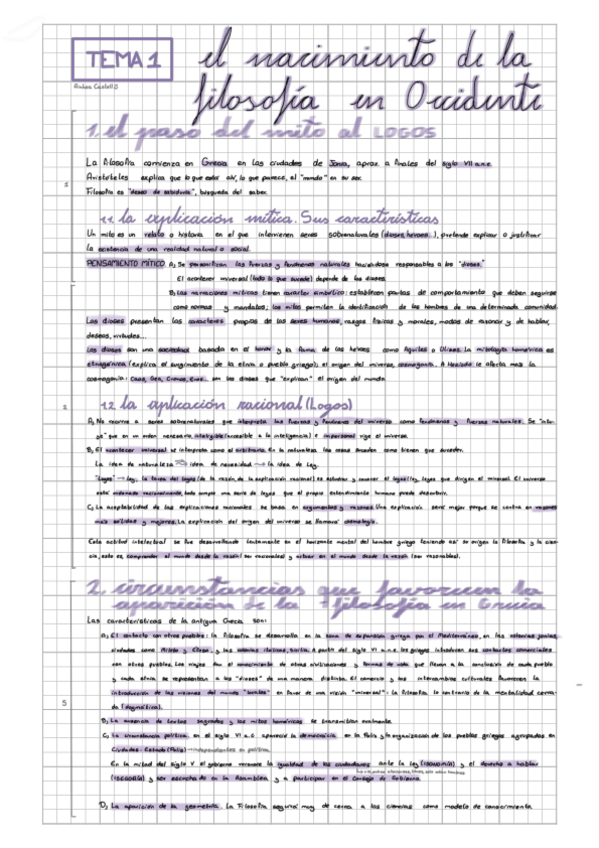 TEMA 1
el nacimiento de la
filosofía en Occidente
1. el paso del mito al LOGOS
La filosofía comienza en Grecia en las ciudades de Jonia, aprox. a finales del siglo VII a.n.e.
Aristóteles explica que lo que está ahí, lo que parece, el "mundo" en su ser.
Filosofía es "deseo de sabiduría", búsqueda del saber.
1
1.1. la explicación mítica. Sus características
Un mito es un relato o historia en el que intervienen seres sobrenaturales (dioses, héroes..), pretende explicar o justificar
la existencia de una realidad natural o social.
PENSAMIENTO MÍTICO: A) Se personifican las fuerzas y fenómenos naturales haciéndose responsables a los "dioses."
El acontecer universal (todo lo que sucede) depende de los dioses.
B) Las narraciones míticas tienen carácter simbólico: establecen pautas de comportamiento que deben seguirse
como normas y mandatos; los mitos permiten la identificación de los hombres de una determinada comunidad.
Los dioses presentan los caracteres propios de los seres humanos, rasgos físicos y morales, modos de razonar y de hablar,
deseos, virtudes...
Los dioses son una sociedad basada en el honor y la fama de los héroes como Aquiles o Ulises. La mitología homérica es
etnogónica (explica el surgimiento de la etnia o pueblo griego); el origen del universo, cosmogonía. A Hesíodo le afecta más la
cosmogonía: Caos, Gea, Cronos, Zeus... son los dioses que "explican" el origen del mundo.
2
1.2. la aplicación racional (Logos)
A) No recurre a seres sobrenaturales que interpreta las fuerzas y fenómenos del universo como fenómenos y fuerzas naturales. Se
que en un orden necesario, inteligible (accesible a la inteligencia) e impersonal rige el universo.
B) El acontecer universal se interpreta como no arbitrario. En la naturaleza las cosas suceden como tienen que suceder.
La idea de naturaleza → idea de necesidad → la idea de Ley.
"Logos" → ley, la tarea del logos (de la razón, de la explicación racional) es estudiar y conocer el logos/ley, leyes que dirigen el universo. El universo
está ordenado racionalmente, todo cumple una serie de leyes que el propio entendimiento humano puede descubrir.
C) La aceptabilidad de las explicaciones racionales se basa en argumentos y razones. Una explicación será mejor porque se cuenta en razones
más sólidas y mejores. La explicación del origen del universo se llamará cosmología.
Esta actitud intelectual se fue desarrollando lentamente en el horizonte mental del hombre griego teniendo así su origen la filosofía y la cien-
cia, esto es, comprender el mundo desde la razón (ser racionales) y actuar en el mundo desde la razón (ser razonables).
2. circunstancias que favorecen la
aparición de la filosofía en Grecia
Las características de la antigua Grecia son:
A) El contacto con otros pueblos: la filosofía se desarrolla en la zona de expansión griega por el Mediterráneo, en las colonias jonias,
ciudades como Mileto y Éfeso, y las colonias itálicas, Sicilia. A partir del siglo VI a.n.e. los griegos introducen sus contactos comerciales
con otros pueblos. Los viajes dan el conocimiento de otras civilizaciones y formas de vida que llevan a la conclusión de cada pueblo
y cada etnia se representan a los "dioses" de una manera distinta. El comercio y los intercambios culturales favorecen la
introducción de las visiones del mundo "locales" en favor de una visión "universal": la filosofía lo contrario de la mentalidad cerra-
da (dogmática).
5
B) La ausencia de textos sagrados y los mitos homéricos se transmitían oralmente.
C) La circunstancia política, en el siglo VI a.n.e. aparecía la democracia en la Polis y la organización de los pueblos griegos agrupados en
Ciudades-Estado (Polis) → independientes en política.
En la mitad del siglo V el gobierno reconoce la igualdad de los ciudadanos ante la ley (ISONOMÍA) y el derecho a hablar
(ISEGORÍA) y ser escuchado en la Asamblea y a participar en el Consejo de Gobierno.
D) La aparición de la geometría. La Filosofía seguirá muy de cerca a las ciencias como modelo de conocimiento.